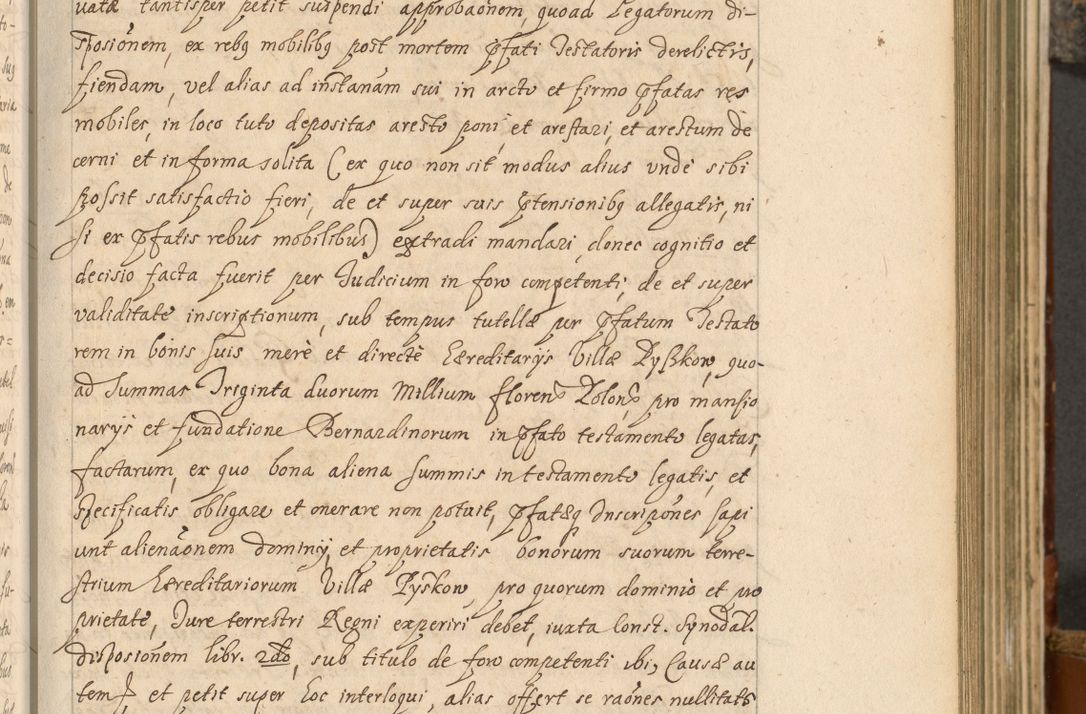 uatæ tantisper petit suspendi approbaõnem, quoad Legatorum di-
sposiõnem, ex rebq mobilibq post mortem pfati Testatoris derelictis,
fiendam, vel alias ad instanãm sui in arcto et firmo pfatas res
mobiles, in loco tuto depositas aresto poni, et arestari, et arestum de
cerni et in forma solita (ex quo non sit modus alius unde sibi
possit satisfactio fieri, de et super suis ptensionibq allegatis, ni
si ex pfatis rebus mobilibus) extradi mandari, donec cognitio et
decisio facta fuerit per Judicium in foro competenti, de et super
validitate inscriptionum, sub tempus tutellæ per pfatum Testato
rem in bonis suis merè et directè Hæreditarijs Villæ Pyßkow, quo-
ad Summas Triginta duorum Millium floren Polon, pro mansio
narijs et fundatione Bernardinorum in pfato testamento legatas,
factarum, ex quo bona aliena summis in testamento legatis, et
specificatis obligare et onerare non potuit, pfatæq Inscripões sapi
unt alienaõnem dominij et proprietatis bonorum suorum terre-
strium Hæreditariorum Villæ Pyskow, pro quorum dominio et pro
prietate, Jure terrestri Regni experiri debet, iuxta Const. Synodal.
disposiõnem libr. 2do, sub titulo de foro competenti ibi, Causæ au
tem et petit super hoc interloqui, alias offert se raões nullitatis